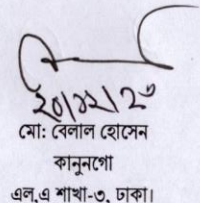 ২০/১২/২৩
মো: বেলাল হোসেন
কানুনগো
এল,এ শাখা-৩, ঢাকা।